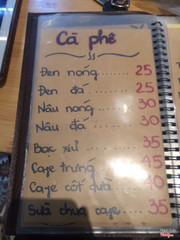 Cà phê
Đen nóng ...... 25
Đen đá ...... 25
Nâu nóng ..... 30
Nâu đá ...... 30
Bạc xỉu ...... 35
Cafe trứng .... 45
Cafe cốt dừa .. 40
Sữa chua cafe ... 35